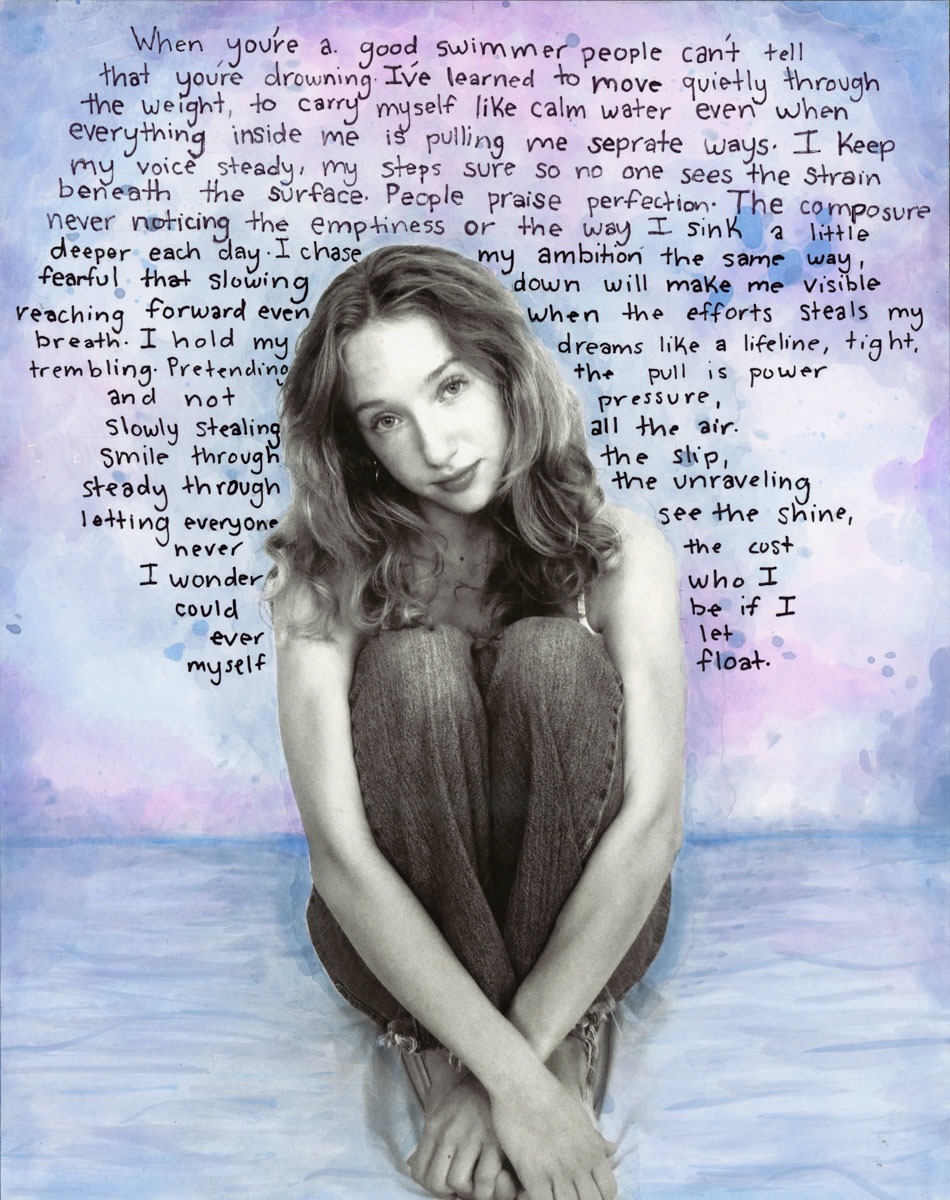 When you're a good swimmer people can't tell
that you're drowning. I've learned to move quietly through
the weight, to carry myself like calm water even when
everything inside me is pulling me seprate ways. I Keep
my voice steady, my steps sure so no one sees the strain
beneath the surface. People praise perfection. The composure
never noticing the emptiness or the way I sink a little
deeper each day. I chase my ambition the same way,
fearful that slowing down will make me visible
reaching forward even when the efforts steals my
breath. I hold my dreams like a lifeline, tight,
trembling. Pretending the pull is power
and not pressure,
slowly stealing all the air.
Smile through the slip,
steady through the unraveling
letting everyone see the shine,
never the cost
I wonder who I
could be if I
ever let
myself float.